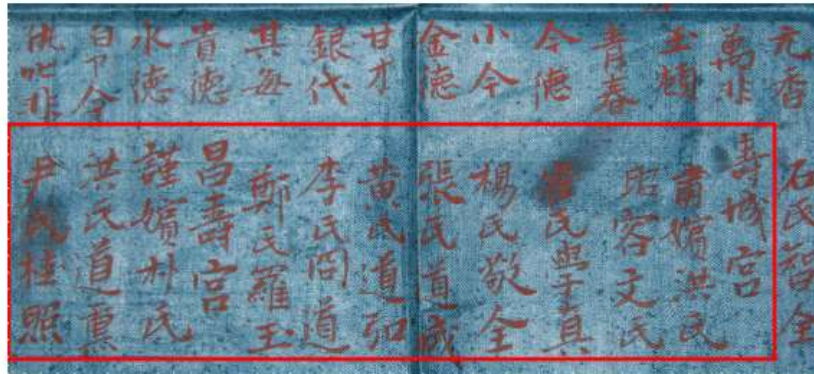 元香
萬非
玉頓
青春
今德
小今
金德
甘才
銀代
其每
貴德
永德
今
叱非
石氏智全
壽城宮
肅嬪洪氏
昭容文氏
氏學真
楊氏敬全
張氏道成
黃氏道弘
李氏問道
鄭氏羅玉
昌壽宮
謹嬪朴氏
洪氏道熏
尹氏桂照